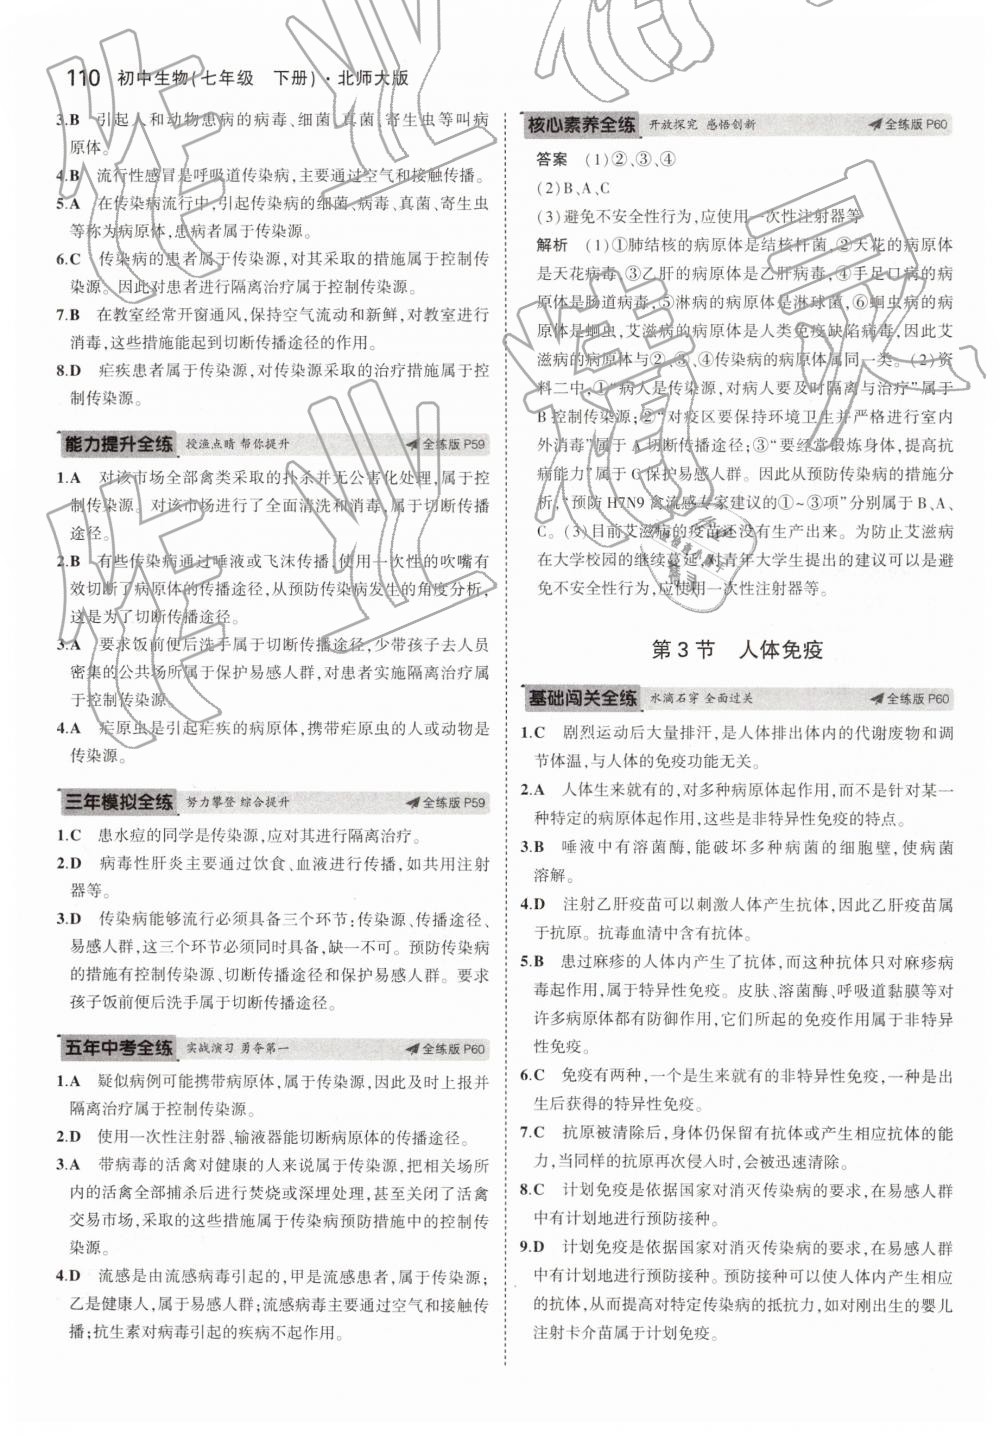 110 初中生物(七年级 下册)·北师大版
3.B 引起人和动物患病的病毒、细菌、真菌、寄生虫等叫病
原体。
4.B 流行性感冒是呼吸道传染病,主要通过空气和接触传播。
5.A 在传染病流行中,引起传染病的细菌、病毒、真菌、寄生虫
等称为病原体,患病者属于传染源。
6.C 传染病的患者属于传染源,对其采取的措施属于控制传
染源。因此对患者进行隔离治疗属于控制传染源。
7.B 在教室经常开窗通风,保持空气流动和新鲜,对教室进行
消毒,这些措施能起到切断传播途径的作用。
8.D 疟疾患者属于传染源,对传染源采取的治疗措施属于控
制传染源。
能力提升全练 授渔点睛 帮你提升 全练版 P59
1.A 对该市场全部禽类采取的扑杀并无公害化处理,属于控
制传染源。对该市场进行了全面清洗和消毒,属于切断传播
途径。
2.B 有些传染病通过唾液或飞沫传播,使用一次性的吹嘴有
效切断了病原体的传播途径,从预防传染病发生的角度分析,
这是为了切断传播途径。
3.A 要求饭前便后洗手属于切断传播途径,少带孩子去人员
密集的公共场所属于保护易感人群,对患病者实施隔离治疗属
于控制传染源。
4.A 疟原虫是引起疟疾的病原体,携带疟原虫的人或动物是
传染源。
三年模拟全练 努力攀登 综合提升 全练版 P59
1.C 患水痘的同学是传染源,应对其进行隔离治疗。
2.D 病毒性肝炎主要通过饮食、血液进行传播,如共用注射
器等。
3.D 传染病能够流行必须具备三个环节:传染源、传播途径、
易感人群,这三个环节必须同时具备,缺一不可。预防传染病
的措施有控制传染源、切断传播途径和保护易感人群。要求
孩子饭前便后洗手属于切断传播途径。
五年中考全练 实战演习 勇夺第一 全练版 P60
1.A 疑似病例可能携带病原体,属于传染源,因此及时上报并
隔离治疗属于控制传染源。
2.D 使用一次性注射器、输液器能切断病原体的传播途径。
3.A 带病毒的活禽对健康的人来说属于传染源,把相关场所
内的活禽全部捕杀后进行焚烧或深埋处理,甚至关闭了活禽
交易市场,采取的这些措施属于传染病预防措施中的控制传
染源。
4.D 流感是由流感病毒引起的,甲是流感患者,属于传染源;
乙是健康人,属于易感人群;流感病毒主要通过空气和接触传
播;抗生素对病毒引起的疾病不起作用。
核心素养全练 开放探究 感悟创新 全练版 P60
答案 (1)②、③、④
(2)B、A、C
(3)避免不安全性行为,应使用一次性注射器等
解析 (1)①肺结核的病原体是结核杆菌,②天花的病原体
是天花病毒,③乙肝的病原体是乙肝病毒,④手足口病的病原
体是肠道病毒,⑤淋病的病原体是淋球菌,⑥蛔虫病的病原
体是蛔虫,艾滋病的病原体是人类免疫缺陷病毒,因此艾
滋病的病原体与②、③、④传染病的病原体属同一类。(2)资
料二中,①“病人是传染源,对病人要及时隔离与治疗”属于
B 控制传染源;②“对疫区要保持环境卫生并严格进行室内
外消毒”属于 A 切断传播途径;③“要经常锻炼身体,提高抗
病能力”属于 C 保护易感人群。因此从预防传染病的措施分
析,“预防 H7N9 禽流感专家建议的①~③项”分别属于 B、A、
C。(3)目前艾滋病的疫苗还没有生产出来。为防止艾滋病
在大学校园的继续蔓延,对青年大学生提出的建议可以是避
免不安全性行为,应使用一次性注射器等。
第 3 节 人体免疫
基础闯关全练 水滴石穿 全面过关 全练版 P60
1.C 剧烈运动后大量排汗,是人体排出体内的代谢废物和调
节体温,与人体的免疫功能无关。
2.A 人体生来就有的,对多种病原体起作用,而不是针对某一
种特定的病原体起作用,这些是非特异性免疫的特点。
3.B 唾液中有溶菌酶,能破坏多种病菌的细胞壁,使病菌
溶解。
4.D 注射乙肝疫苗可以刺激人体产生抗体,因此乙肝疫苗属
于抗原。抗毒血清中含有抗体。
5.B 患过麻疹的人体内产生了抗体,而这种抗体只对麻疹病
毒起作用,属于特异性免疫。皮肤、溶菌酶、呼吸道黏膜等对
许多病原体都有防御作用,它们所起的免疫作用属于非特异
性免疫。
6.C 免疫有两种,一个是生来就有的非特异性免疫,一种是出
生后获得的特异性免疫。
7.C 抗原被清除后,身体仍保留有抗体或产生相应抗体的能
力,当同样的抗原再次侵入时,会被迅速清除。
8.C 计划免疫是依据国家对消灭传染病的要求,在易感人群
中有计划地进行预防接种。
9.D 计划免疫是依据国家对消灭传染病的要求,在易感人群
中有计划地进行预防接种。预防接种可以使人体内产生相应
的抗体,从而提高对特定传染病的抵抗力,如对刚出生的婴儿
注射卡介苗属于计划免疫。